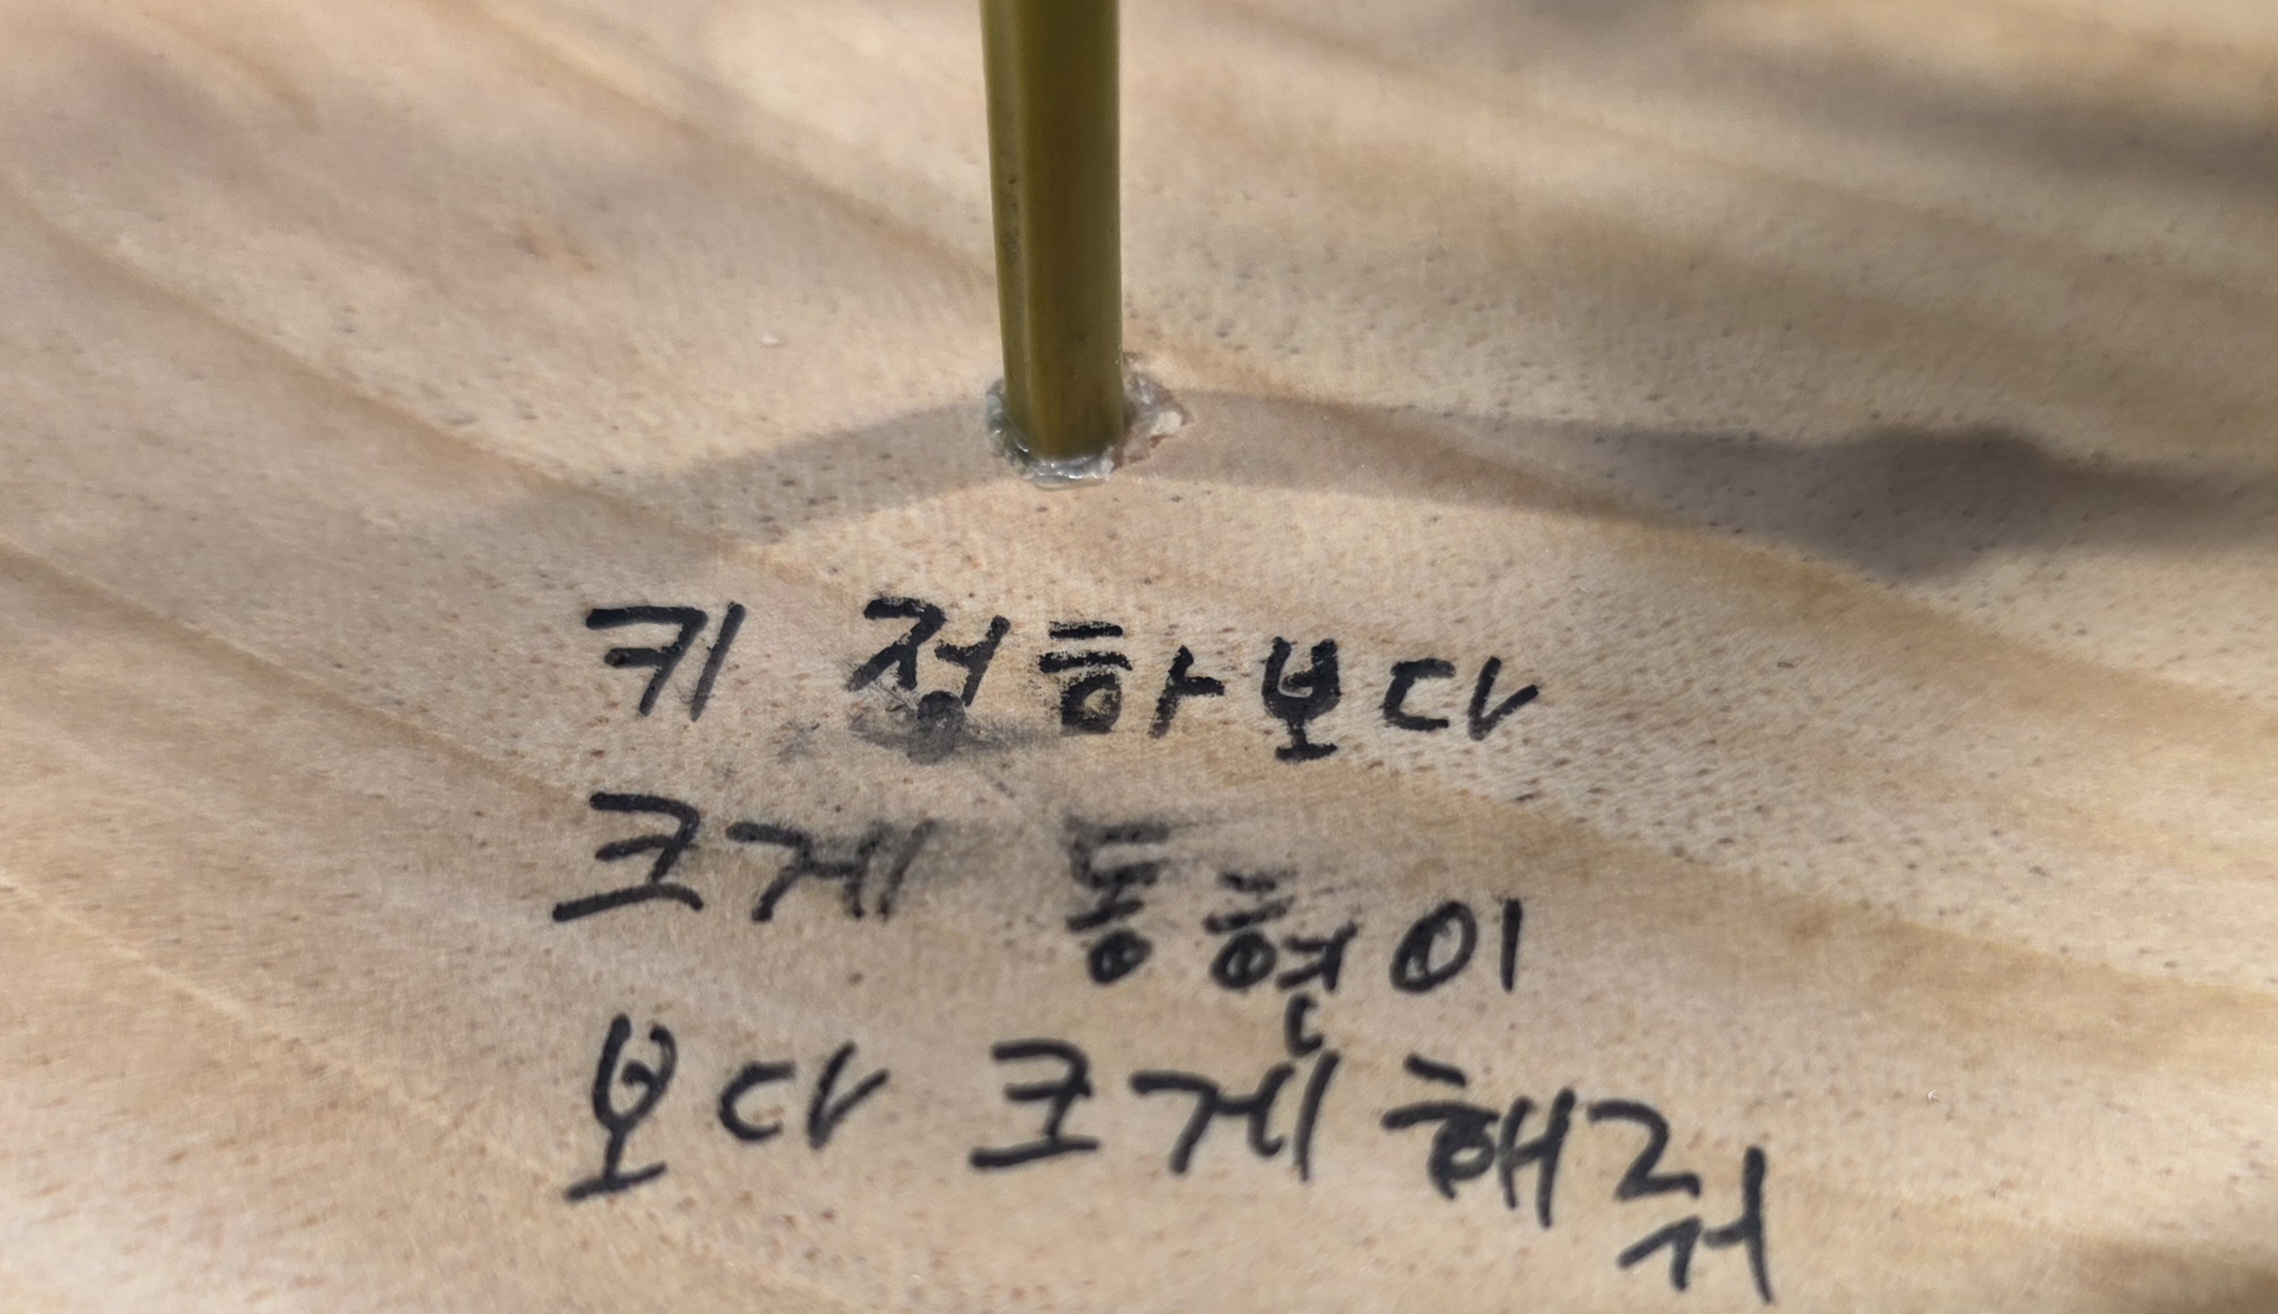 키 정하보다
크게 동현이
보다 크게 해줘